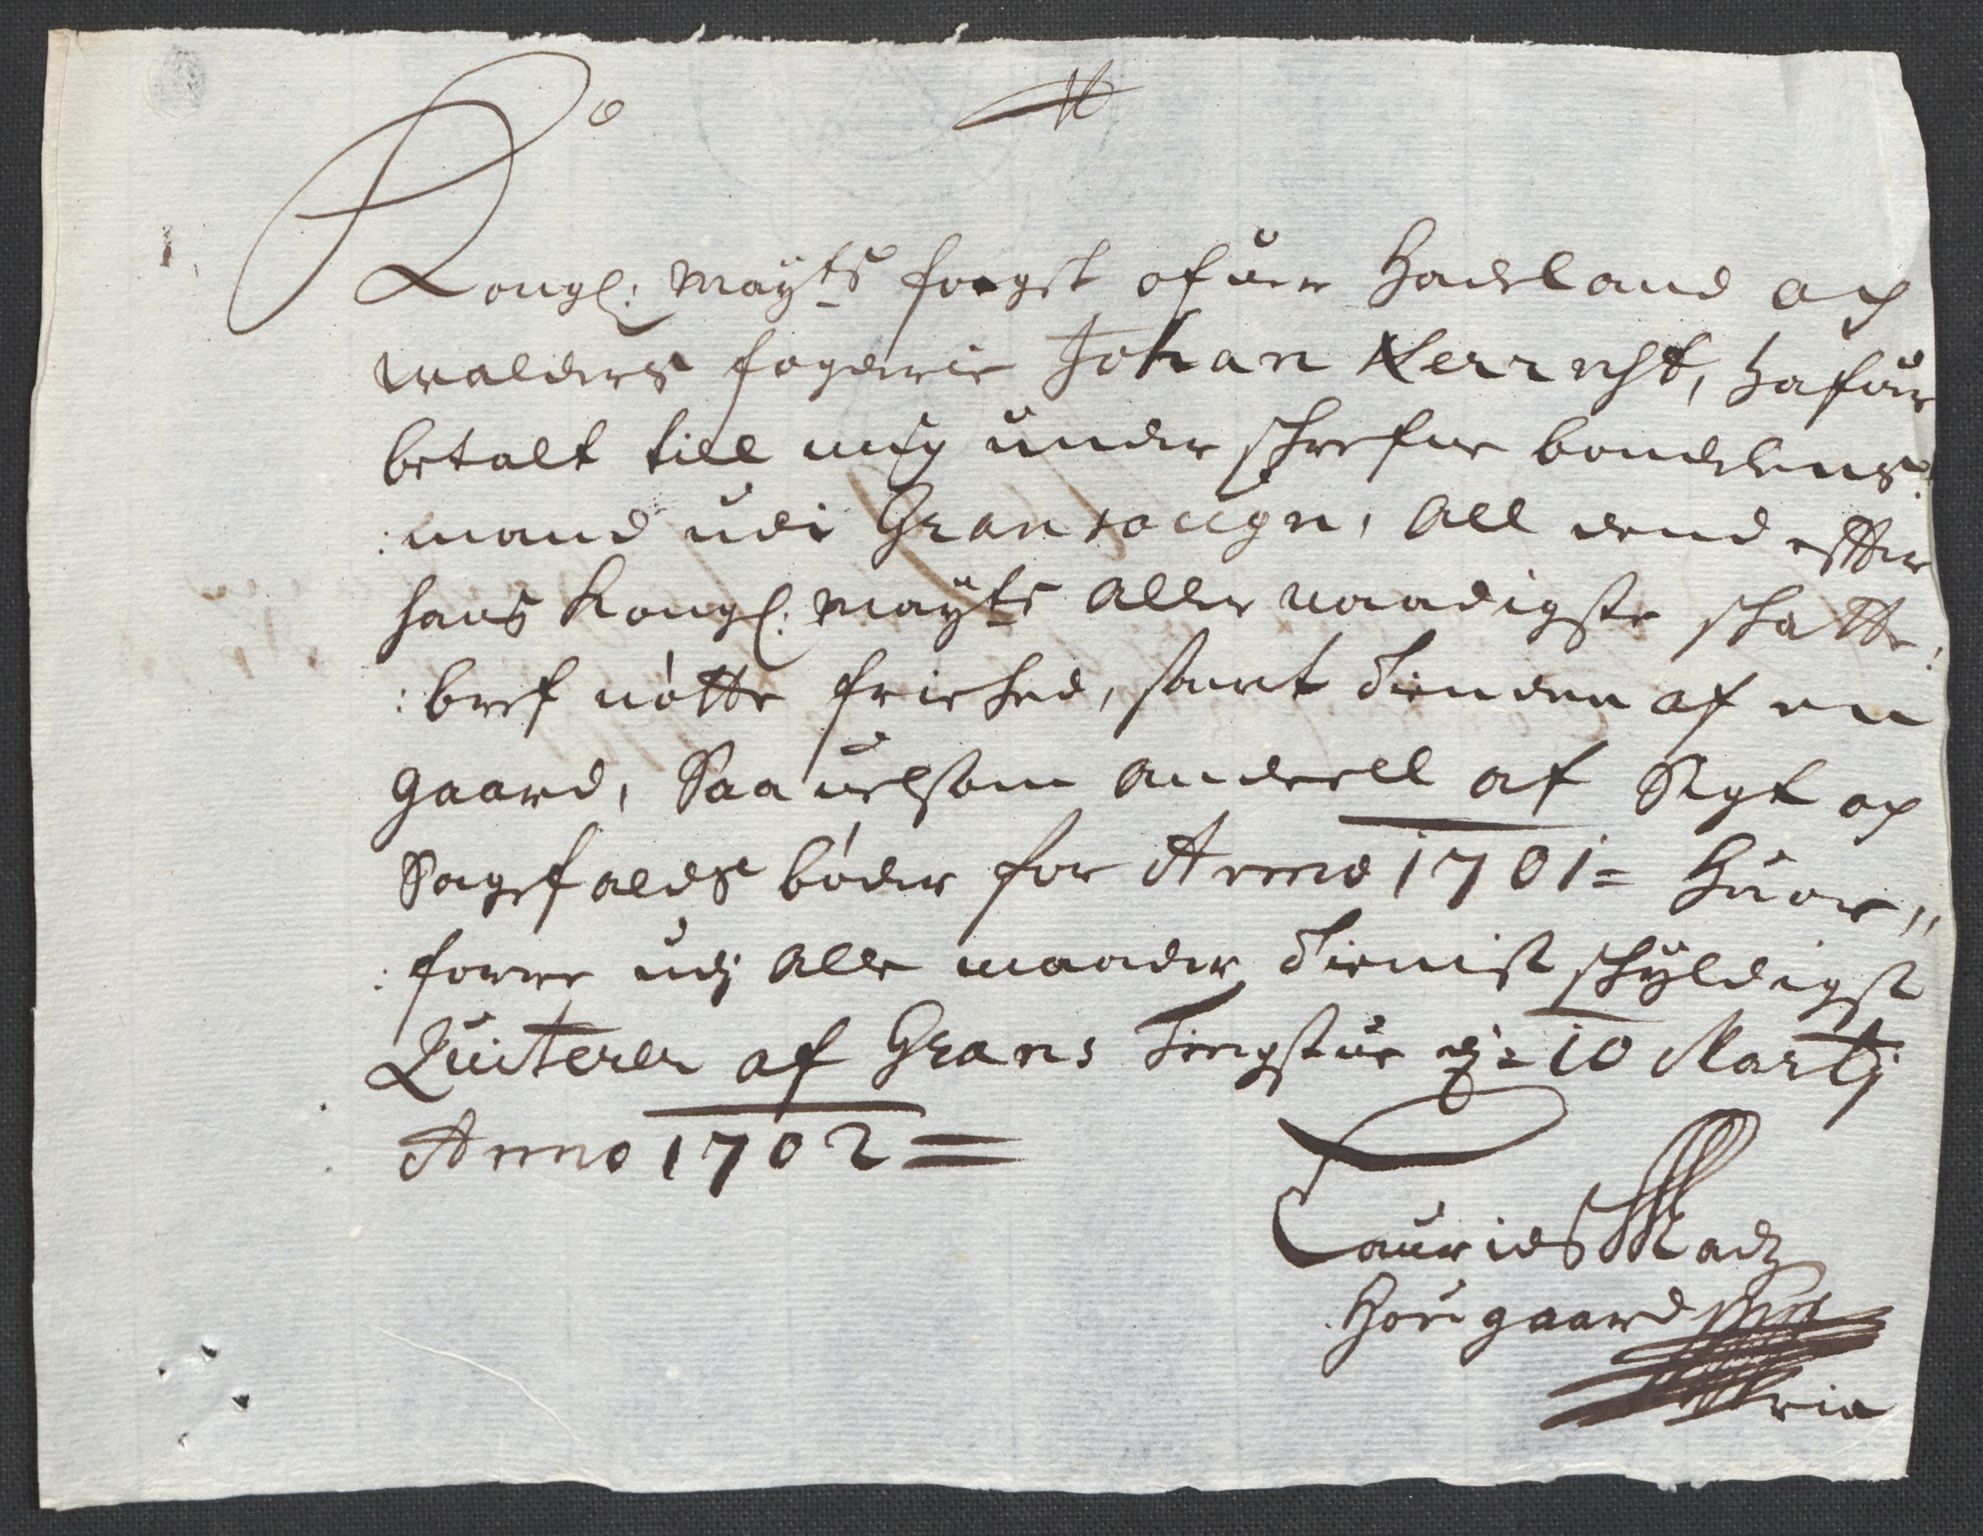 Kongl: Mayts fougt ofuer Hadeland och
Walders fogderie Johan Kerrecht, hafuer
betalt till mig under schrefne bondelens:
:mand udi Gransougn, All dend efter
hans Kongl: Mayts Aller naadigste skatte:
:bref nötte friehed, samt Tienden af en
gaard, Saauelsom Andeell af Sigt och
Sagefalds böder for Anno 1701 = Huor,,
:forre udj Alle maader Tienist schyldigst
Quiterer af Grans Tingstue dj = 10 Martij
Anno 1702 =
Laurids Madz
Horgaard